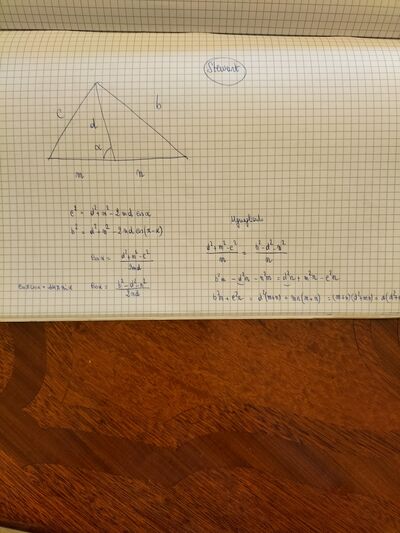 Stewart
c
b
d
α
m
n
c² = d² + m² - 2md cos α
b² = d² + n² - 2nd cos(π-α)
cos α = d²+m²-c² / 2md
cos α = b²-d²-n² / 2nd
d²+m²-c² / m = b²-d²-n² / n
b²m - d²m - n²m = d²n + m²n - c²n
b²m + c²n = d²(m+n) + mn(m+n) = (m+n)(d²+mn) = a(d²+